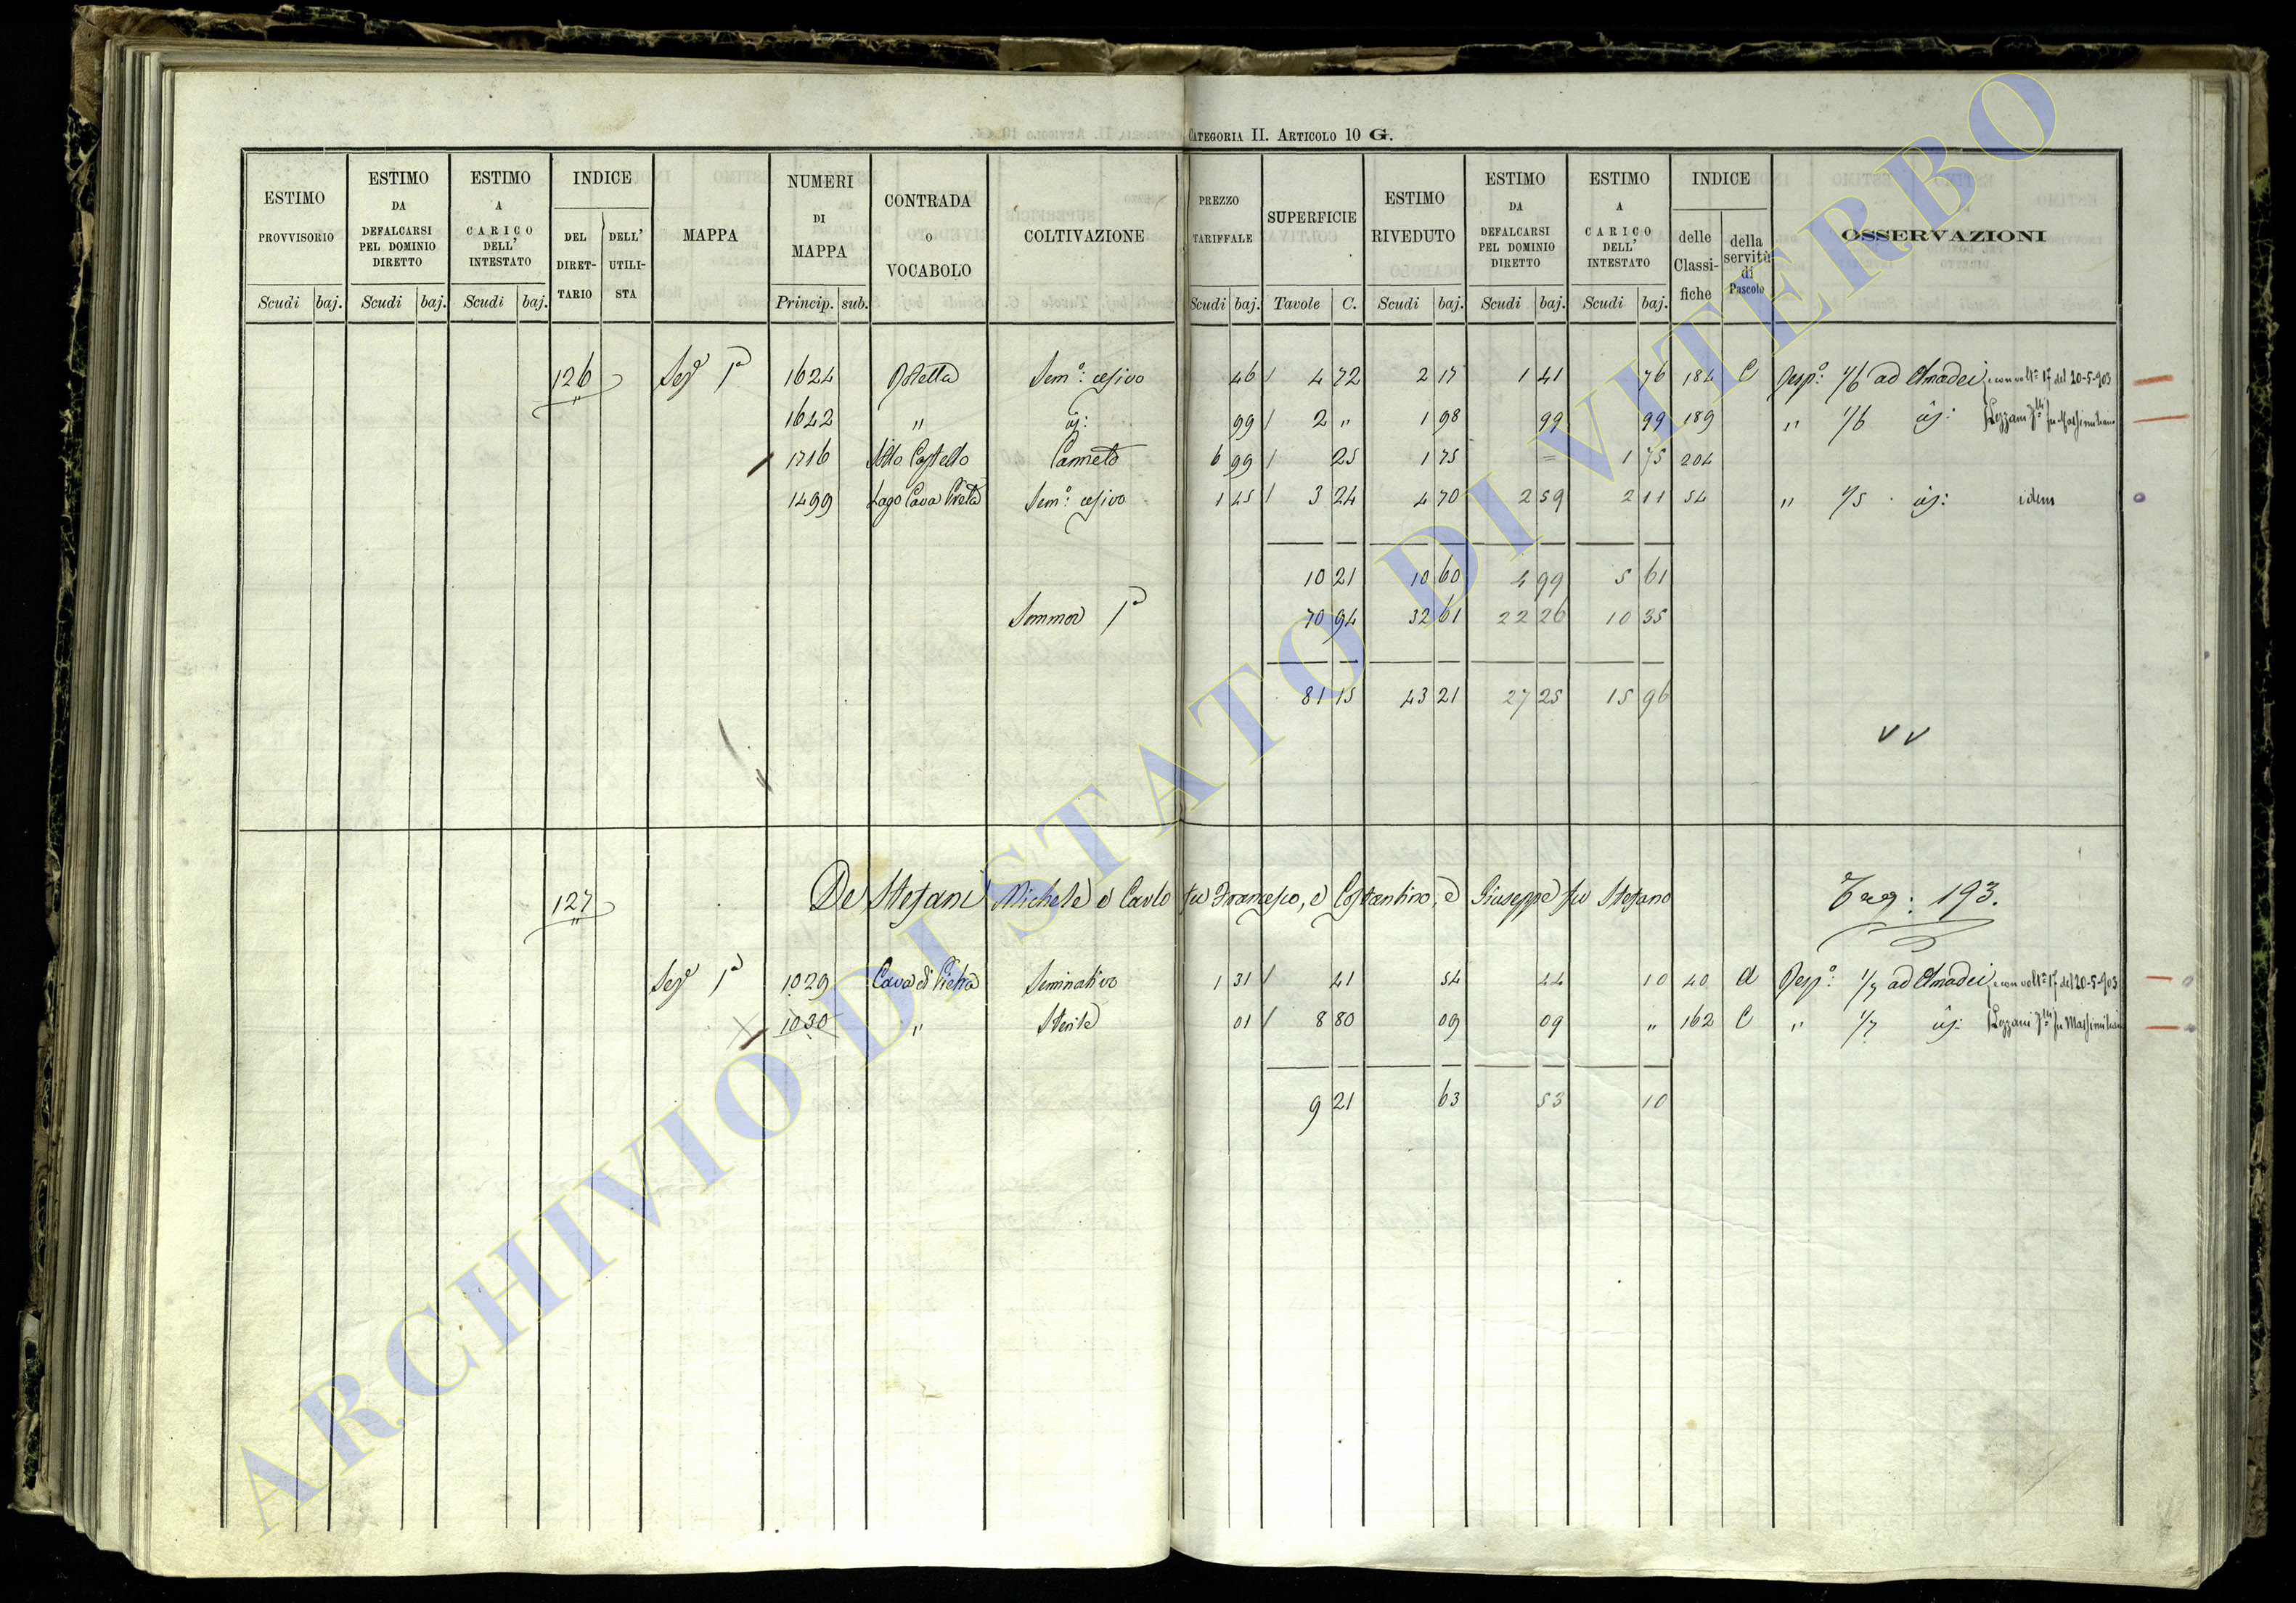 CATEGORIA II. ARTICOLO 10 G.
ESTIMO PROVVISORIO Scudi baj. ESTIMO DA DEFALCARSI PEL DOMINIO DIRETTO Scudi baj. ESTIMO A CARICO DELL' INTESTATO Scudi baj. INDICE DEL DIRETTARIO DELL' UTILISTA MAPPA NUMERI DI MAPPA Princip. sub. CONTRADA O VOCABOLO COLTIVAZIONE PREZZO TARIFFALE Scudi baj. SUPERFICIE Tavole C. ESTIMO RIVEDUTO Scudi baj. ESTIMO DA DEFALCARSI PEL DOMINIO DIRETTO Scudi baj. ESTIMO A CARICO DELL' INTESTATO Scudi baj. INDICE delle Classifiche della servitù di Pascolo OSSERVAZIONI
126 Sez 1a 1624 Sem.o cesivo 46 / 4 72 2 17 1 41 76 184 C Resp.o 1/6 ad Amadei e con volt.a 17 del 20-5-903
1642 " 99 / 2 " 1 98 99 99 189 " 1/6 Lozzani fu Massimiliano
1716 Sotto Castello Canneto 6 99 / 25 1 75 = 1 75 204
1499 Lago Cava Sem.o cesivo 1 45 / 3 24 4 70 2 59 2 11 54 " 1/5 idem
10 21 10 60 4 99 5 61
Somma 1a 70 94 32 61 22 26 10 35
81 15 43 21 27 25 15 96
127 De Stefani Michele e Carlo fu Francesco, e Costantino, e Giuseppe fu Stefano 193.
Sez 1a 1029 Cava di Pietra Seminativo 1 31 / 41 54 44 10 40 A Resp.o 1/7 ad Amadei e con volt.a 17 del 20-5-903
1030 " Sterile 01 / 8 80 09 09 " 162 C " 1/7 Lozzani fu Massimiliano
9 21 63 53 10
ARCHIVIO DI STATO DI VITERBO